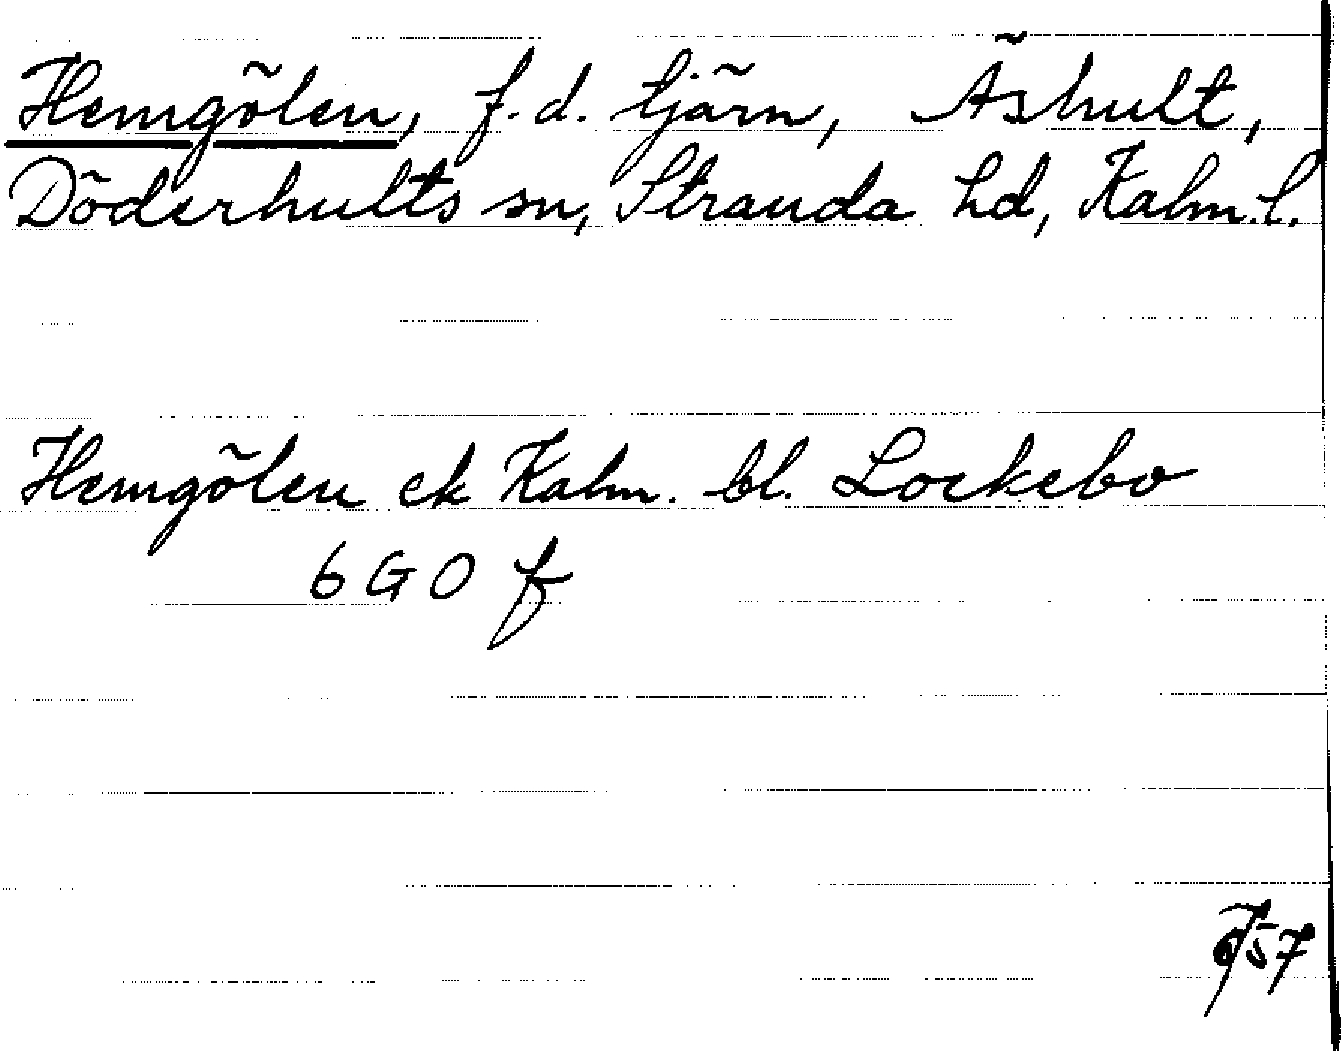 Hemgölen, f.d. tjärn, Äshult,
Döderhults sn, Stranda hd, Kalm. l.
Hemgölen ek Kalm. bl. Lockebo
6 G O f